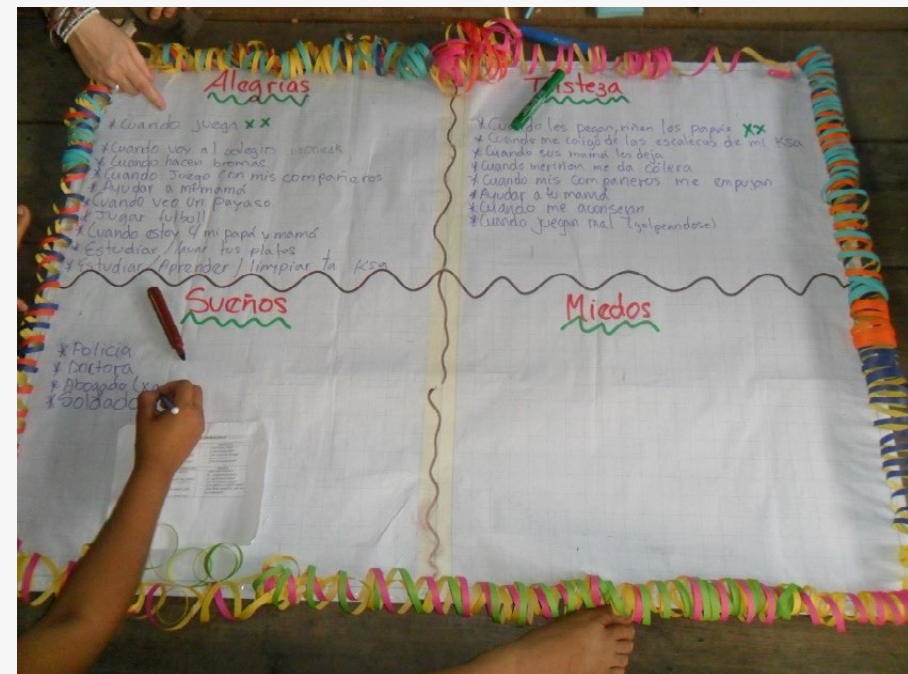 Alegrías
*Cuando juega xx
*Cuando voy al colegio
*Cuando hacen bromas
*Cuando Juego con mis compañeros
*Ayudar a mi mamá
*Cuando veo un payaso
*Jugar fulboll
*Cuando estoy c/ mi papá y mamá
*Estudiar/lavar tus platos
*Estudiar/Aprender/limpiar la Ksa
Tristeza
*Cuando les pegan, riñen los papás xx
*Cuando me caligo de las escaleras de mi Ksa
*Cuando sus mamá les deja
*Cuando me riñen me da cólera
*Cuando mis compañeros me empujan
*Ayudar a tu mamá
*Cuando me aconsejan
*Cuando juegan mal (golpeandose)
Sueños
*Policia
*Doctora
*Abogado
*Soldado
Miedos